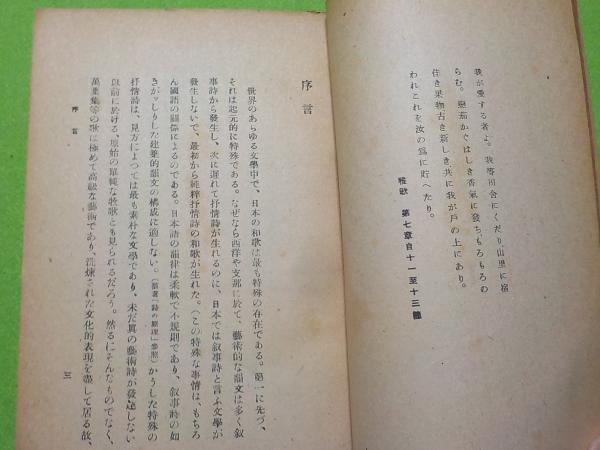 我が愛する者よ。我等田舍にくだり山里に宿
らむ。戀茄かぐはしき香氣に發ちもろもろの
佳き果物古き新しき共に我が戸の上にあり。
われこれを汝の爲に貯へたり。
雅歌 第七章自十一至十三節
序言
世界のあらゆる文學中で、日本の和歌は最も特殊の存在である。第一に先づ、
それは起元的に特殊である。なぜなら西洋や支那に於て、藝術的な韻文は多く敍
事詩から發生し、次に遲れて抒情詩が生れるのに、日本では敍事詩と言ふ文學が
發生しないで、最初から純粹抒情詩の和歌が生れた。（この特殊な事情は、もちろ
ん國語の關係によるのである。日本語の韻律は柔軟で不規則であり、敍事詩の如
きがつしりした建築的韻文の構成に適しない。（拙著「詩の原理」參照）かうした特殊の
抒情詩は、見方によつては最も素朴な文學であり、未だ眞の藝術詩が發達しない
以前に於ける、原始の單純な牧歌とも見られるだらう。然るにそんなものでなく、
萬葉集等の歌は極めて高級な藝術であり、洗煉された文化的表現を盡して居る故、
序言
三